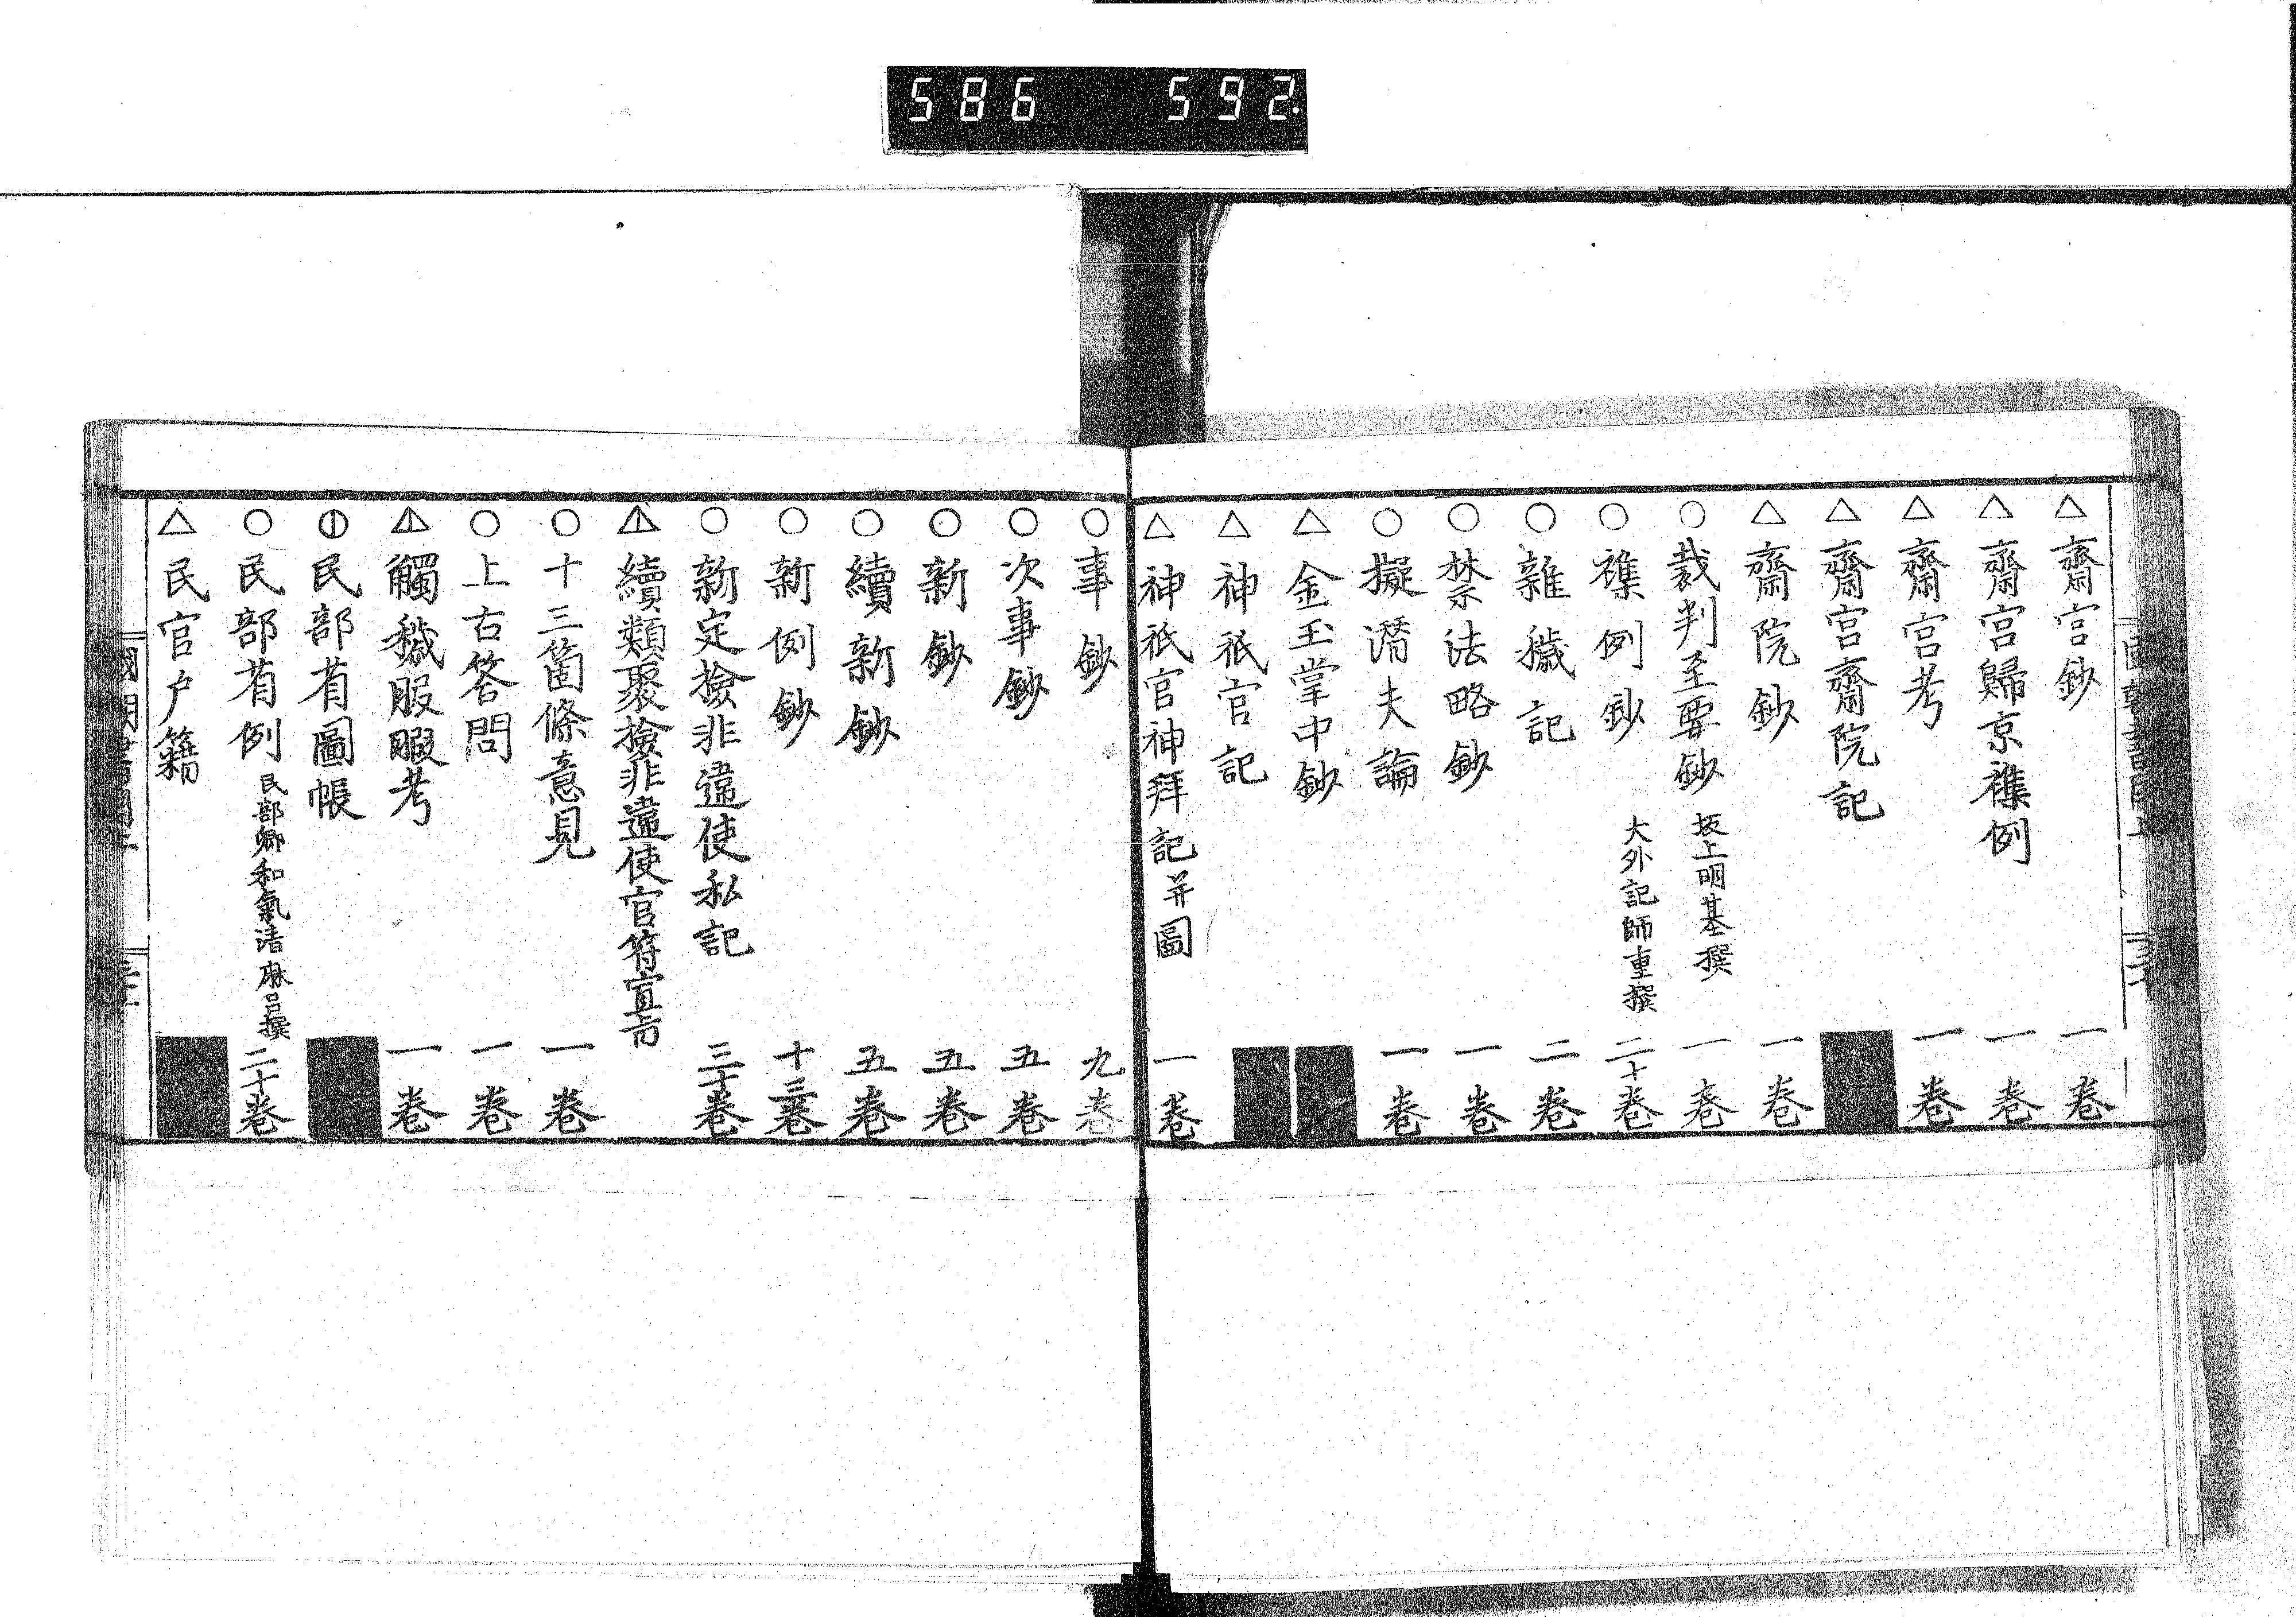 586 592.
△齋宮鈔 一卷
△齋宮歸京襍例 一卷
△齋宮考 一卷
△齋宮齋院記
△齋院鈔 一卷
○裁判至要鈔 坂上明基撰 一卷
○襍例鈔 大外記師重撰 二十卷
○雜穢記 二卷
○禁法略鈔 一卷
○擬潛夫論 一卷
△金玉掌中鈔
△神祇官記
△神祇官神拜記并圖 一卷
○事鈔 九卷
○次事鈔 五卷
○新鈔 五卷
○續新鈔 五卷
○新例鈔 十三卷
○新定撿非違使私記 三十卷
續類聚撿非違使官符宣旨
○十三箇條意見 一卷
○上古答問 一卷
觸穢服暇考 一卷
民部省圖帳
○民部省例 民部卿和氣清麻呂撰 二十卷
△民官户籍